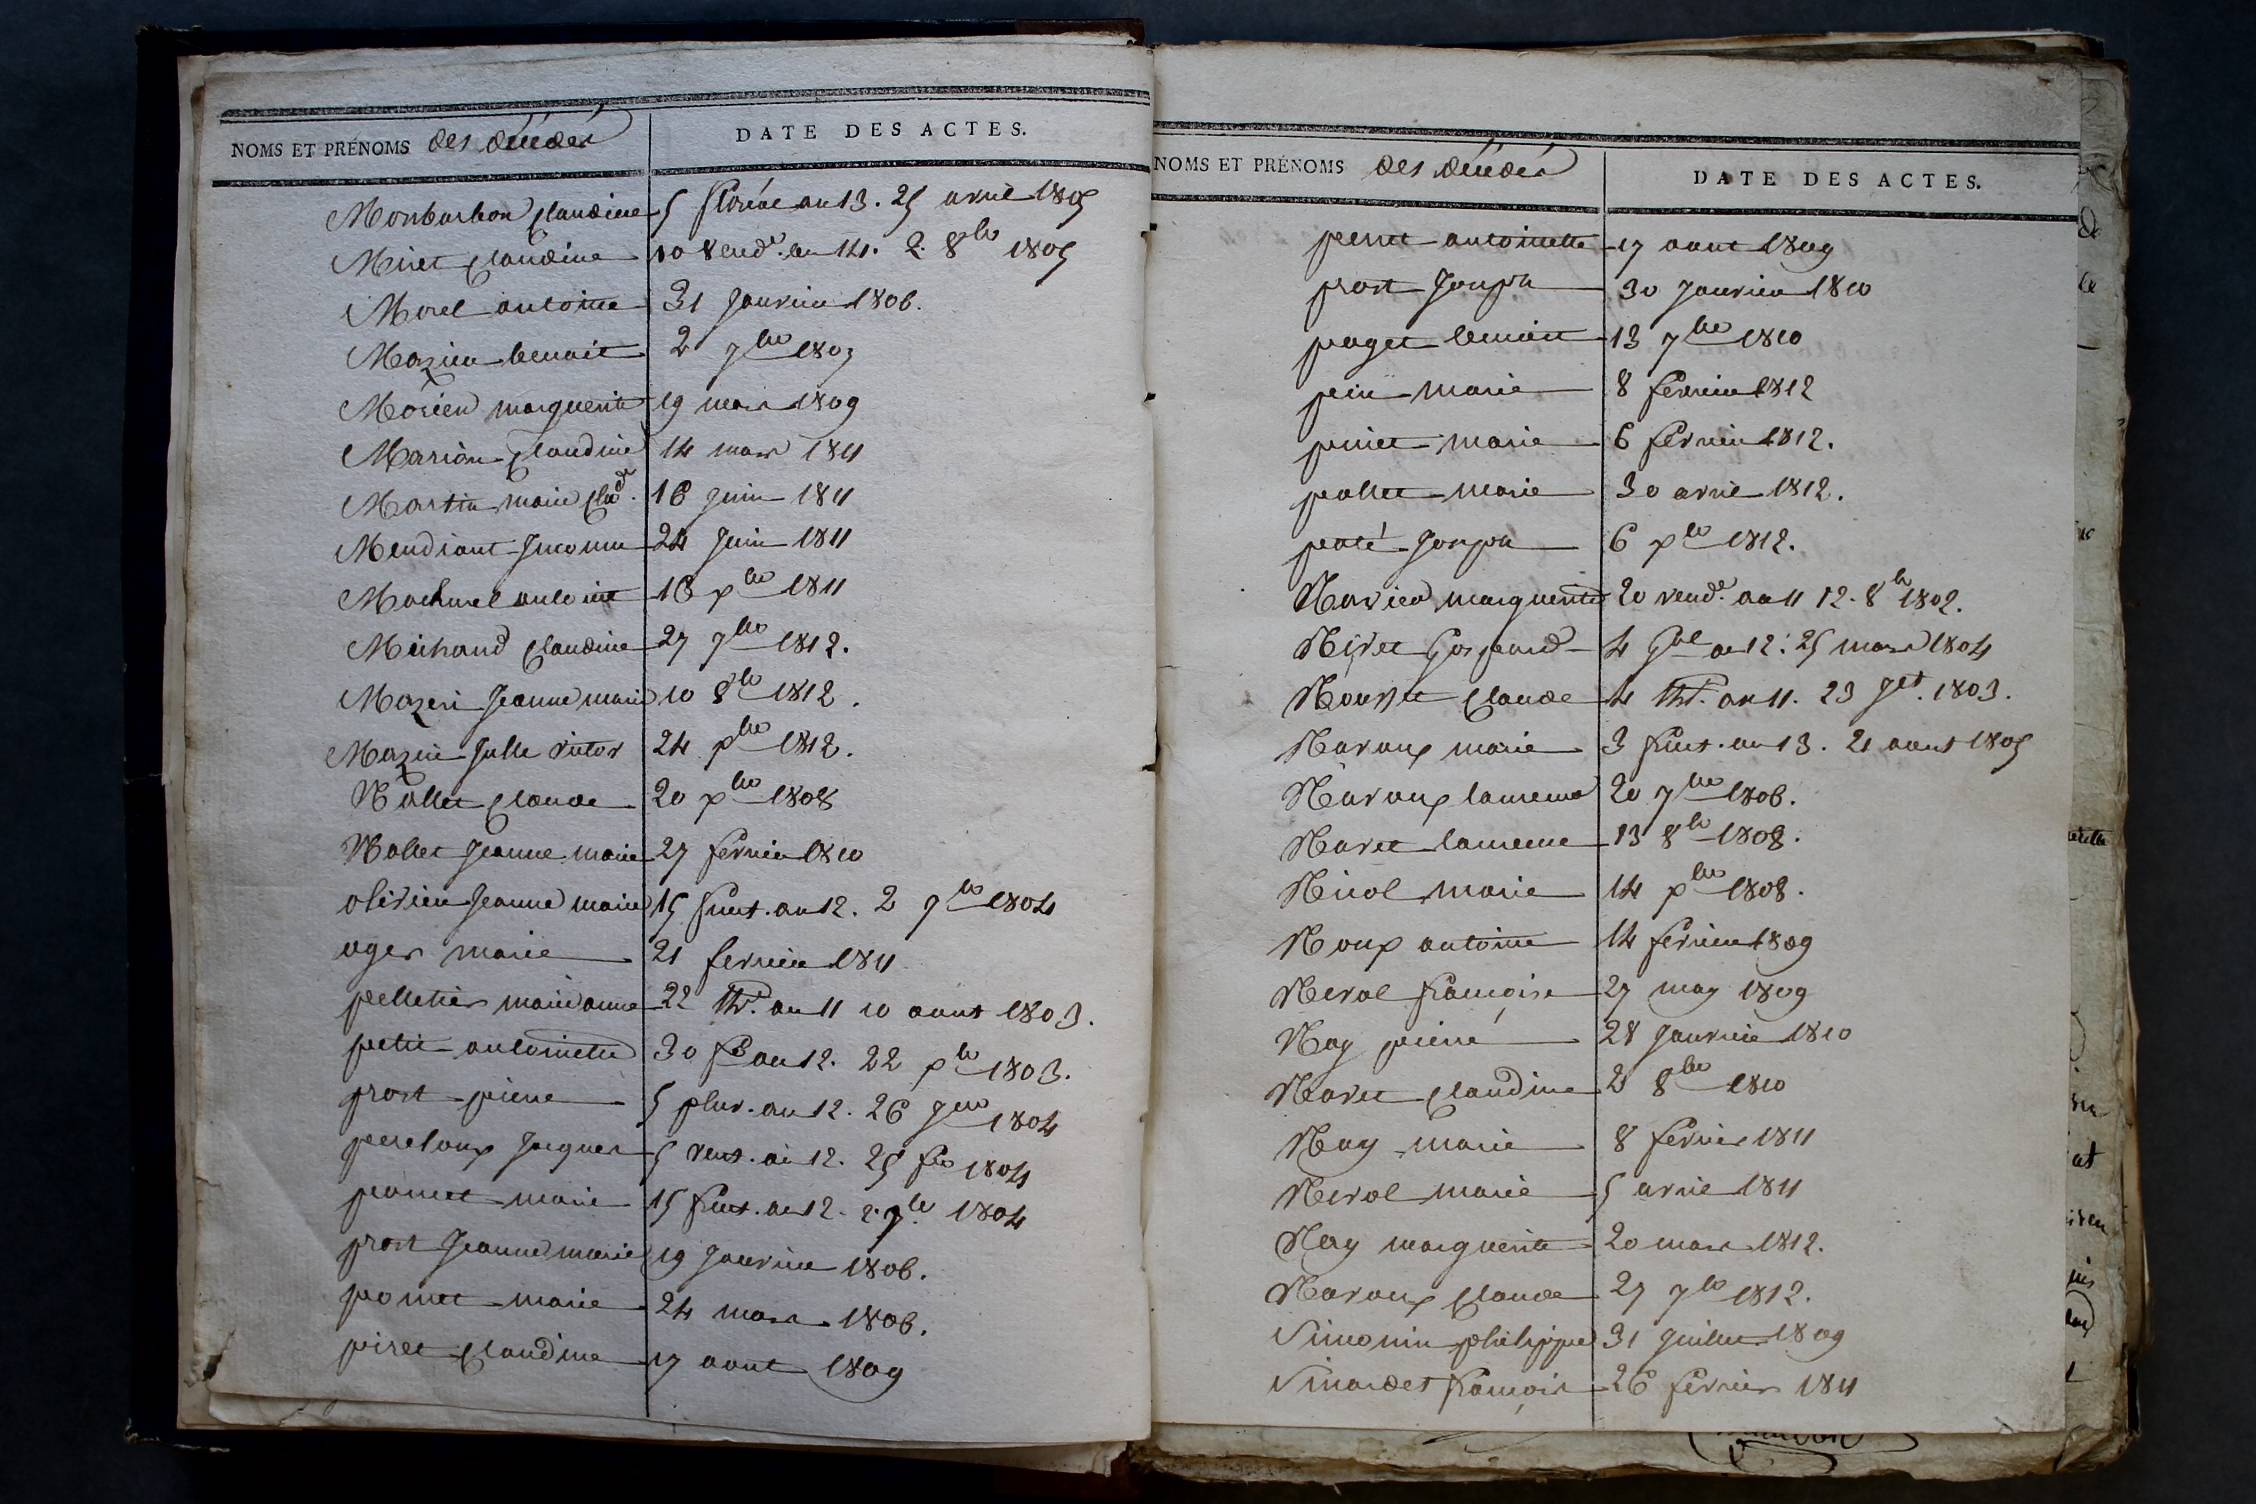 NOMS ET PRÉNOMS des décédés DATE DES ACTES.
Monbarbon Claudine 5 floréal an 13. 25 avril 1805
Miret Claudine 10 vendre. an 14. 2. 8bre 1805
Morel antoine 31 Janvier 1806.
Mazieu benoit 2 7bre 1807
Morieu marguerite 19 mars 1809
Marion Claudine 14 mars 1811
Martin marie Clde. 16 juin 1811
Mendiant Inconnu 24 Juin 1811
Machurel antoine 18 xbre 1811
Michaud Claudine 27 7bre 1812.
Mazeri Jeanne marie 10 8bre 1812.
Mazui Julle victor 24 xbre 1812.
Nallet Claude 20 xbre 1808
Nallet Jeanne marie 27 fevrier 1810
olivier Jeanne marie 15 fruct. an 12. 2 7bre 1804
oger marie 21 fevrier 1811
pelletier marie anne 22 thr. an 11 10 aout 1803.
petit antoinette 30 f an 12. 22 xbre 1803.
prost pierre 5 pluv. an 12. 26 Jer 1804
pereloup Jacques 5 vent. an 12. 25 fer 1804
pomet marie 15 fruct. an 12. 2. 7bre 1804
prost Jeanne marie 19 Janvier 1806.
pomet marie 24 mars 1806.
piret Claudine 17 aout 1809
NOMS ET PRÉNOMS des décédés DATE DES ACTES.
perret antoinette 17 aout 1809
prost Joseph 30 Janvier 1810
paget benoit 13 7bre 1810
marie 8 fevrier 1812
marie 6 fevrier 1812.
pallet marie 30 avril 1812.
paté Joseph 6 xbre 1812.
Ravier marguerite 20 vendre. an 11 12. 8bre 1802.
Gaspard 4 Gal an 12. 25 mars 1804
Rousset Claude 4 thr. an 11. 23 Jet. 1803.
Ravoux marie 3 fruct. an 13. 21 aout 1805
Ravoux laurence 20 7bre 1806.
Ravet laurence 13 8bre 1808.
Nicol marie 14 xbre 1808.
Roux antoine 14 fevrier 1809
Revol francoise 27 may 1809
Ray pierre 28 Janvier 1810
Ravet Claudine 2 8bre 1810
Ray marie 8 fevrier 1811
Revol marie 5 avril 1811
Rey marguerite 20 mars 1812.
Ravoux Claude 27 7bre 1812.
Simonin philippe 31 Juillet 1809
Simardet francois 26 fevrier 1811